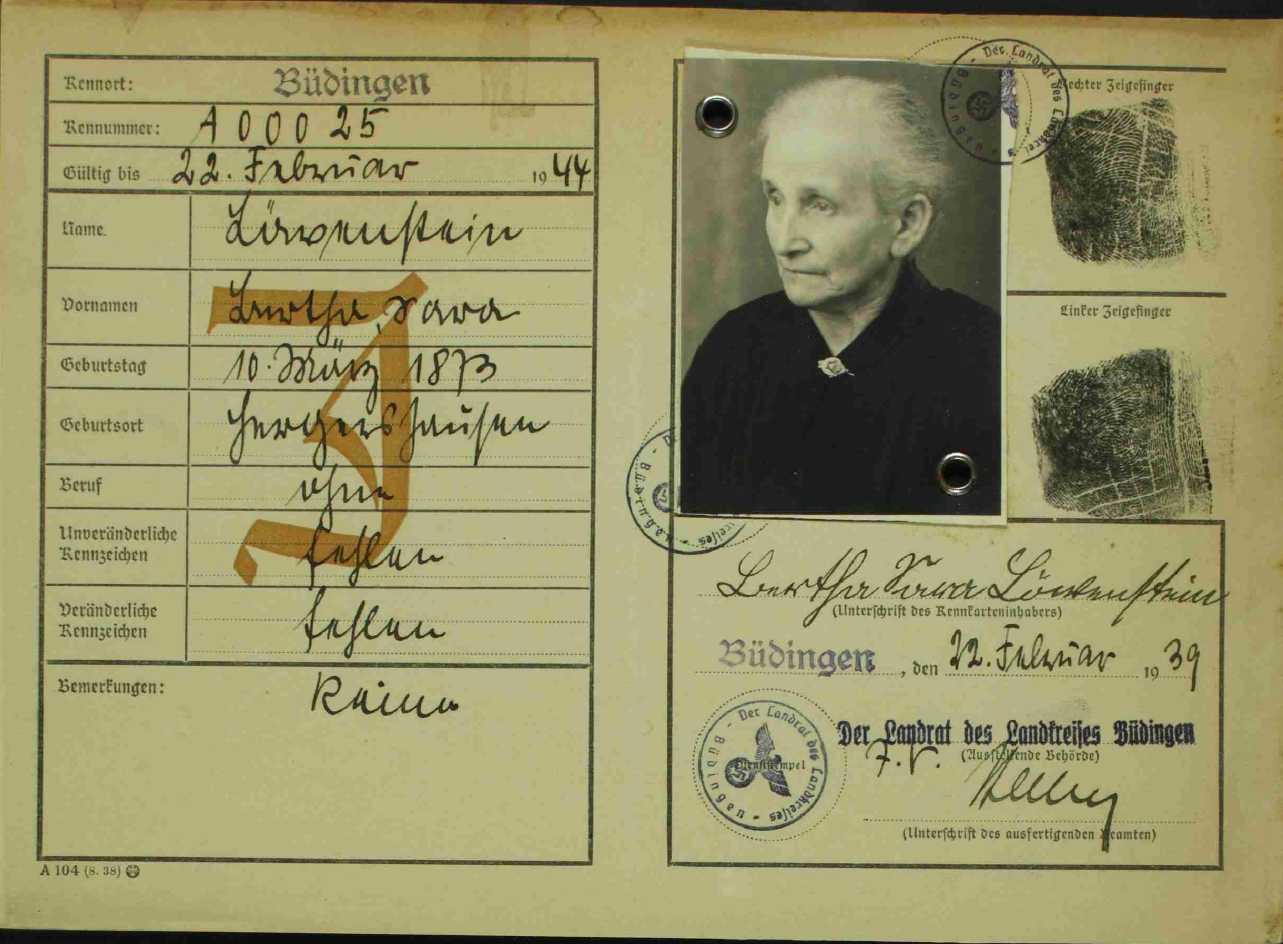 Kennort: Büdingen
Kennummer: A 00025
Gültig bis 22. Februar 1944
Name Löwenstein
Vornamen Bertha, Sara
Geburtstag 10. März 1873
Geburtsort Hergershausen
Beruf ohne
Unveränderliche Kennzeichen fehlen
Veränderliche Kennzeichen fehlen
Bemerkungen: Keine
J
A 104 (8. 38)
Der Landrat des Landkreises - Büdingen -
Rechter Zeigefinger
Linker Zeigefinger
Der Landrat des Landkreises - Büdingen -
Bertha Sara Löwenstein
(Unterschrift des Kennkarteninhabers)
Büdingen, den 22. Februar 1939
Der Landrat des Landkreises - Büdingen -
Dienststempel
Der Landrat des Landkreises Büdingen
(Ausstellende Behörde)
J. V.
(Unterschrift des ausfertigenden Beamten)